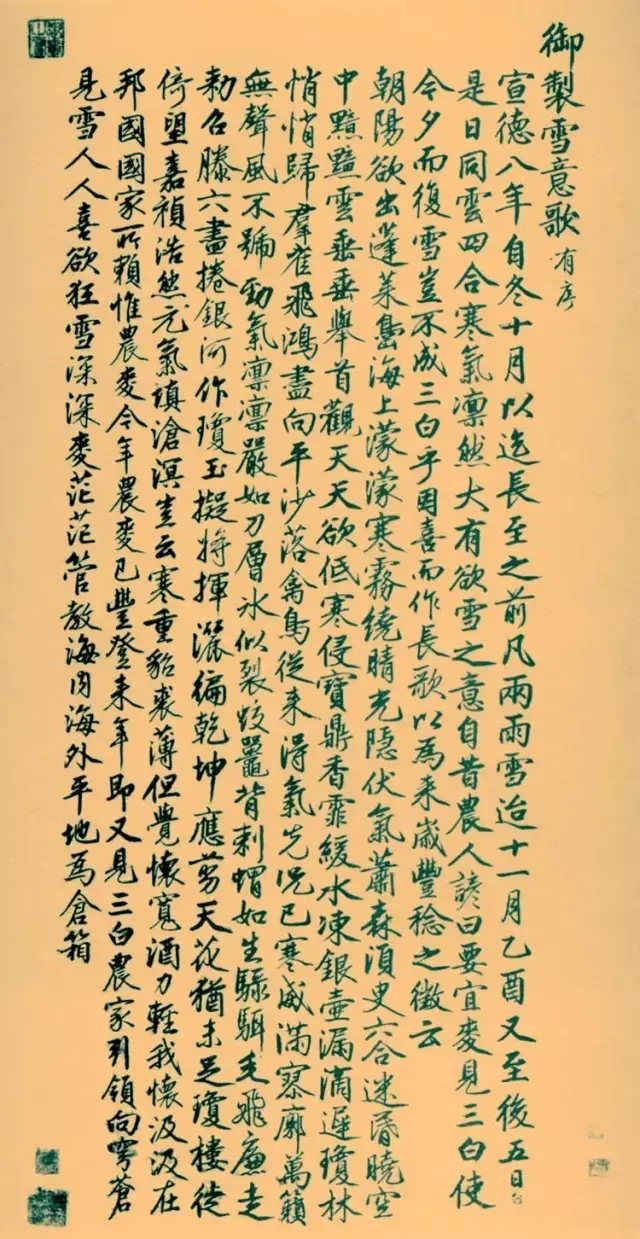 御製雪意歌 有序
宣德八年自冬十月以迄長至之前凡兩雨雪迨十一月乙酉又至後五日
是日同雲四合寒氣凛然大有欲雪之意自昔農人諺曰要宜麥見三白使
今夕而復雪豈不成三白乎因喜而作長歌以為來歲豐稔之徵云
朝陽欲出蓬萊島海上濛濛寒霧繞晴光隱伏氣蕭森湏臾六合迷昏曉空
中黯黯雲垂垂舉首觀天天欲低寒侵寶鼎香霏緩水凍銀壺漏滴遲瓊林
悄悄歸羣雀飛鴻盡向平沙落禽鳥從来得氣先况已寒威滿寥廓萬籟
無聲風不號勁氣凛凛嚴如刀層氷似裂蛟鼉背刺蝟如生騄駬毛飛廉走
勑召滕六盡捲銀河作瓊玉擬将揮灑徧乾坤應剪天花猶未足瓊樓徙
倚望嘉禎浩然元氣填滄溟豈云寒重貂裘薄但覺懷寬酒力輕我懷汲汲在
邦國國家所賴惟農麥今年農麥已豐登来年即又見三白農家引領向穹蒼
見雪人人喜欲狂雪深深麥茫茫管教海内海外平地為倉箱